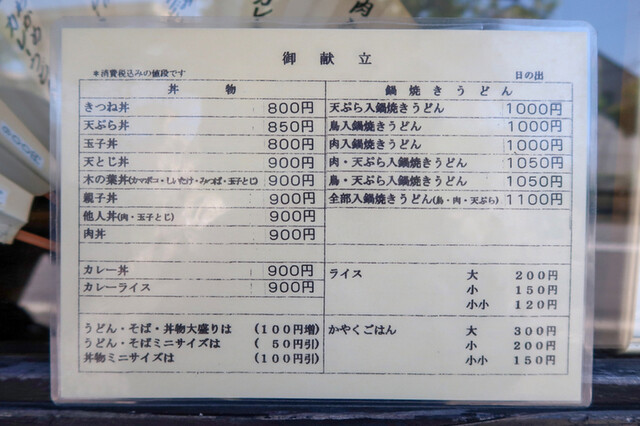 御献立
*消費税込みの値段です
日の出
丼物
きつね丼 800円
天ぷら丼 850円
玉子丼 800円
天とじ丼 900円
木の葉丼(カマボコ・しいたけ・みつば・玉子とじ) 900円
親子丼 900円
他人丼(肉・玉子とじ) 900円
肉丼 900円
カレー丼 900円
カレーライス 900円
うどん・そば・丼物大盛りは (100円増)
うどん・そばミニサイズは ( 50円引)
丼物ミニサイズは (100円引)
鍋焼きうどん
天ぷら入鍋焼きうどん 1000円
鳥入鍋焼きうどん 1000円
肉入鍋焼きうどん 1000円
肉・天ぷら入鍋焼きうどん 1050円
鳥・天ぷら入鍋焼きうどん 1050円
全部入鍋焼きうどん(鳥・肉・天ぷら) 1100円
ライス 大 200円
小 150円
小小 120円
かやくごはん 大 300円
小 200円
小小 150円